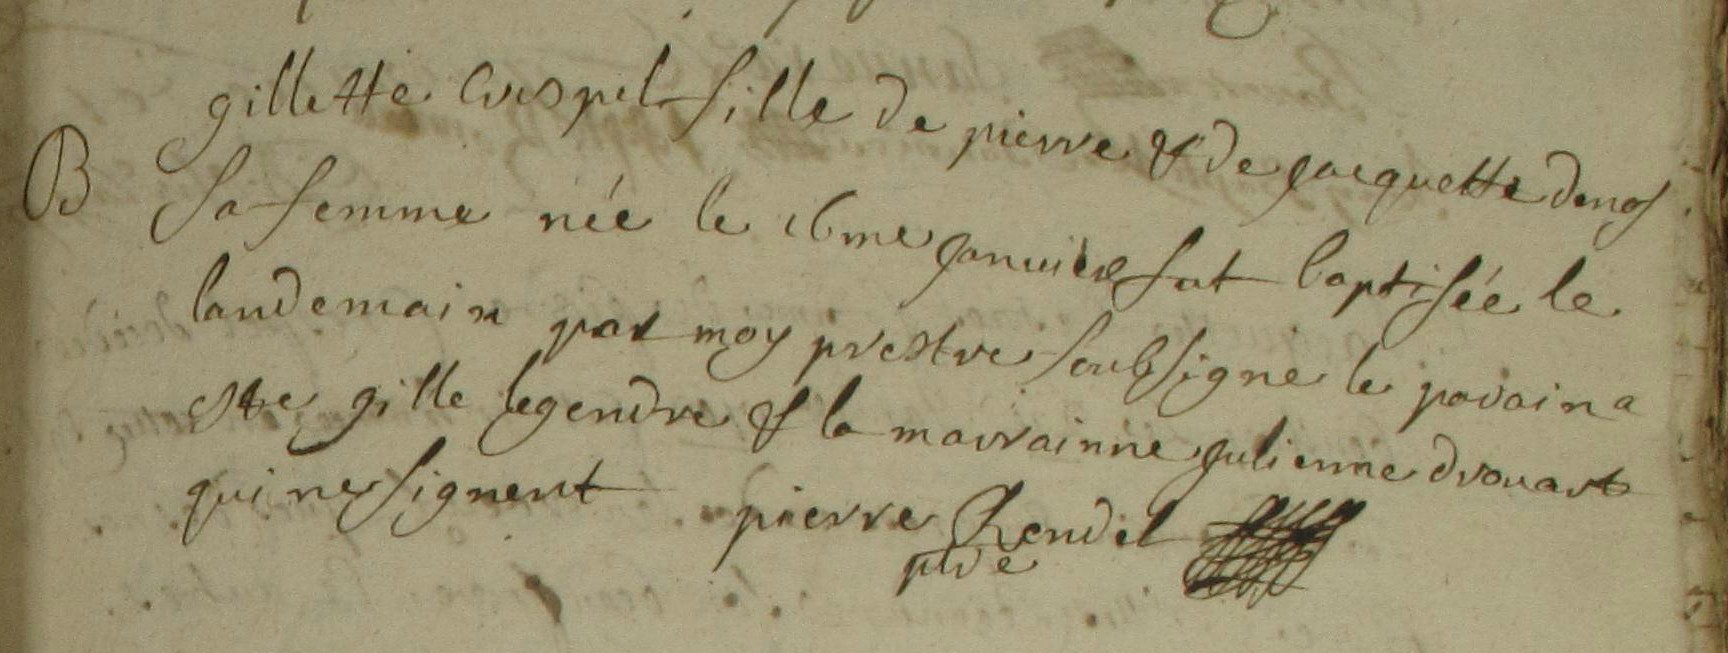 gillette Crespel fille de pierre & de jacquette denos
B sa femme née le 16me janvier fut baptisée le
landemain par moy prestre soubsigne le parain a
este gille legendre & la marrainne julienne drouart
qui ne signent pierre Rendel
pbre